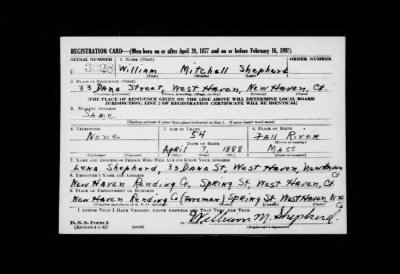 REGISTRATION CARD—(Men born on or after April 28, 1877 and on or before February 16, 1897)
SERIAL NUMBER 1. NAME (Print) ORDER NUMBER
U 3023 William Mitchell Shepherd
(First) (Middle) (Last)
2. PLACE OF RESIDENCE (Print)
33 Dana Street, West Haven, New Haven, Ct.
[THE PLACE OF RESIDENCE GIVEN ON THE LINE ABOVE WILL DETERMINE LOCAL BOARD
JURISDICTION; LINE 2 OF REGISTRATION CERTIFICATE WILL BE IDENTICAL]
3. MAILING ADDRESS
Same
[Mailing address if other than place indicated on line 2. If same insert word same]
4. TELEPHONE 5. AGE IN YEARS 6. PLACE OF BIRTH
None 54 Fall River
DATE OF BIRTH
April 7, 1888 Mass
7. NAME AND ADDRESS OF PERSON WHO WILL ALWAYS KNOW YOUR ADDRESS
Lena Shepherd, 33 Dana St, West Haven, New Haven Ct
8. EMPLOYER'S NAME AND ADDRESS
New Haven Rending Co, Spring St. West Haven, Ct.
9. PLACE OF EMPLOYMENT OR BUSINESS
New Haven Rending Co (Foreman) Spring St. West Haven,
I AFFIRM THAT I HAVE VERIFIED ABOVE ANSWERS AND THAT THEY ARE TRUE.
D. S. S. Form 1
(Revised 4-1-42) (over)
William M. Shepherd
(Registrant's signature)